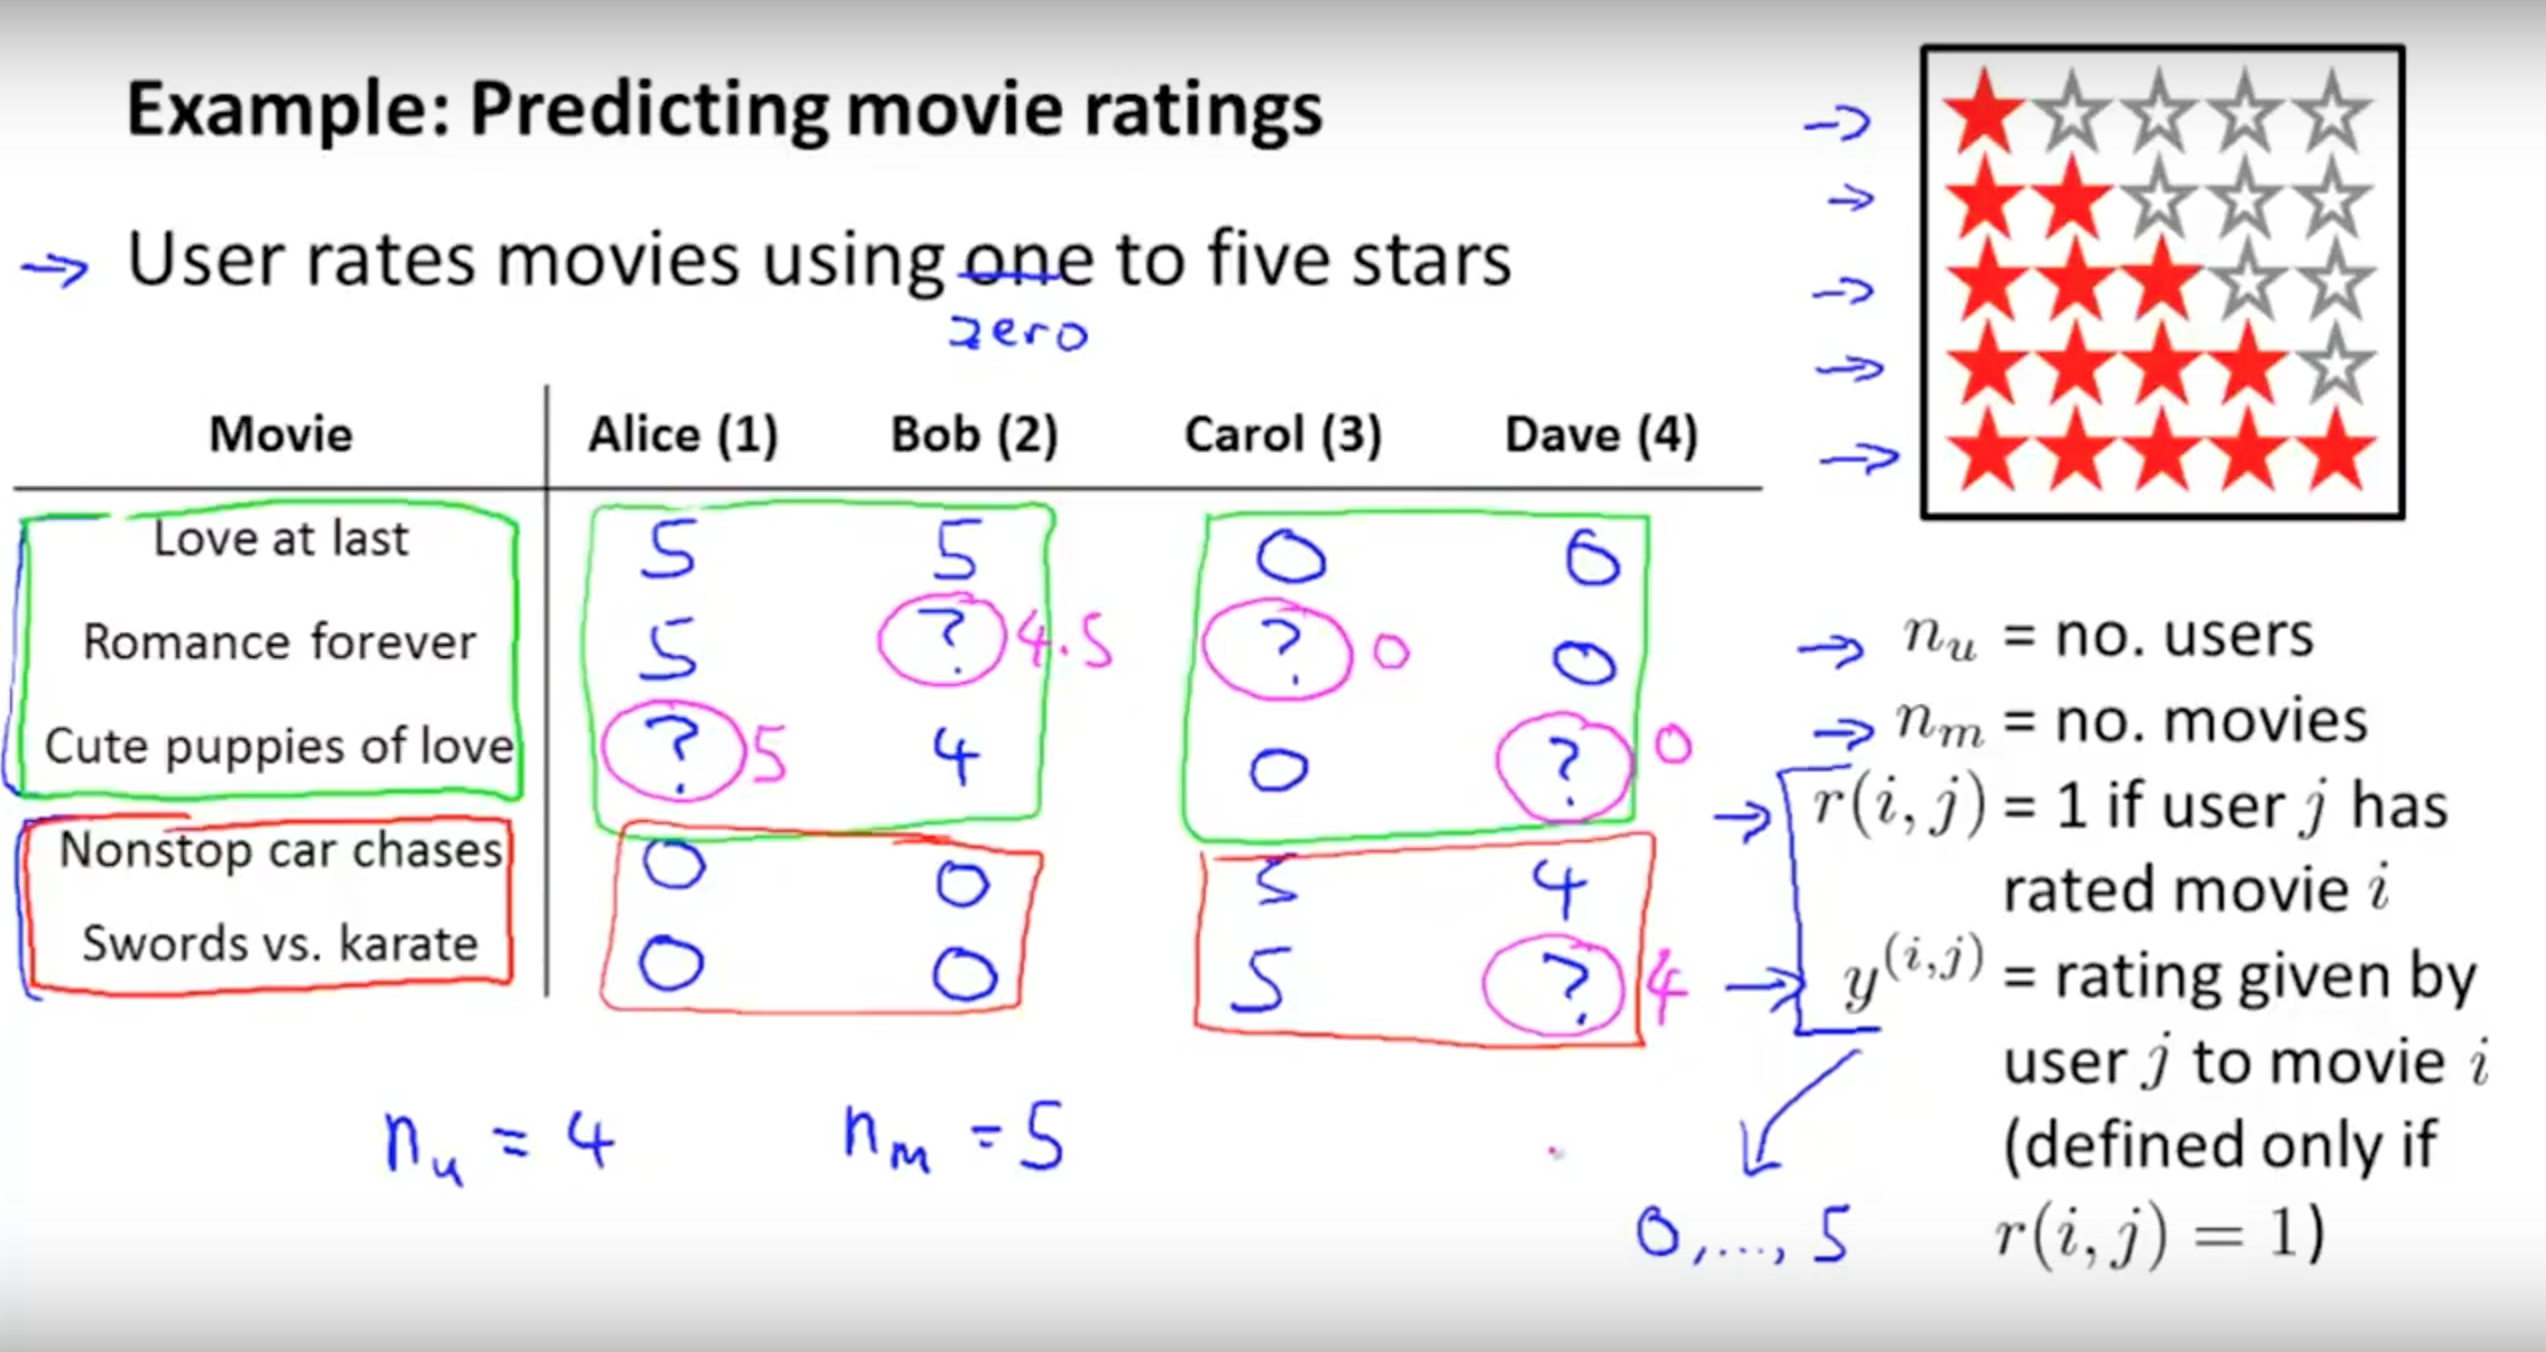 Example: Predicting movie ratings
→ User rates movies using one to five stars
zero
Movie Alice (1) Bob (2) Carol (3) Dave (4)
Love at last 5 5 0 0
Romance forever 5 ? 4.5 ? 0 0
Cute puppies of love ? 5 4 0 ? 0
Nonstop car chases 0 0 5 4
Swords vs. karate 0 0 5 ? 4
n_u = 4 n_m = 5
→ n_u = no. users
→ n_m = no. movies
→ r(i, j) = 1 if user j has
rated movie i
→ y^(i,j) = rating given by
user j to movie i
(defined only if
r(i, j) = 1)
0, ..., 5